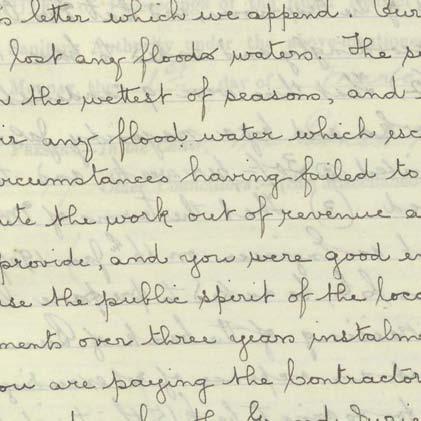 s letter which we append. Our
lost any floods waters. The s
n the wettest of seasons, and
ir any flood water which esc
rcumstances having failed to
ute the work out of revenue a
provide, and you were good e
use the public spirit of the loca
ments over three years instalm
ou are paying the Contractor